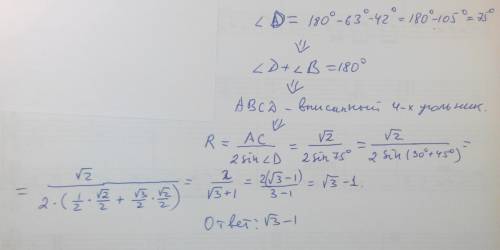 ∠D = 180° - 63° - 42° = 180° - 105° = 75°
⇓
∠D + ∠B = 180°
⇓
ABCD - вписанный 4-х угольник.
⇓
R = AC / (2 sin∠D) = √2 / (2 sin 75°) = √2 / (2 sin(30° + 45°)) =
= √2 / (2 · (1/2 · √2/2 + √3/2 · √2/2)) = 2 / (√3 + 1) = 2(√3 - 1) / (3 - 1) = √3 - 1.
Ответ: √3 - 1